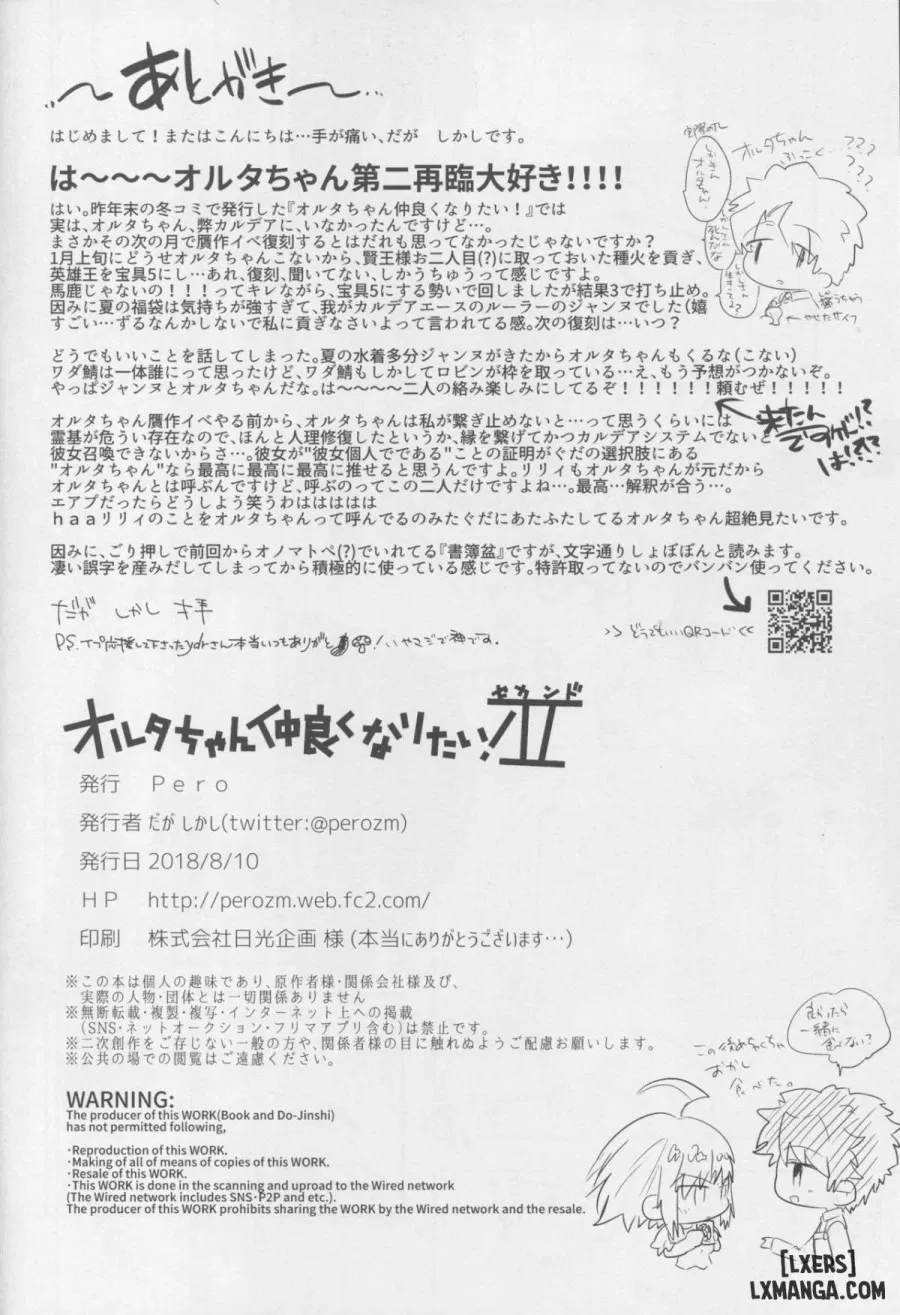 ～あとがき～
はじめまして！またはこんにちは…手が痛い、だが　しかしです。
は～～～オルタちゃん第二再臨大好き！！！！
はい。昨年末の冬コミで発行した『オルタちゃん仲良くなりたい！』では
実は、オルタちゃん、弊カルデアに、いなかったんですけど…。
まさかその次の月で贋作イベ復刻するとはだれも思ってなかったじゃないですか？
1月上旬にどうせオルタちゃんこないから、賢王様お二人目(?)に取っておいた種火を貢ぎ、
英雄王を宝具5にし…あれ、復刻、聞いてない、しかうちゅうって感じですよ。
馬鹿じゃないの！！！ってキレながら、宝具5にする勢いで回しましたが結果3で打ち止め。
因みに夏の福袋は気持ちが強すぎて、我がカルデアエースのルーラーのジャンヌでした(嬉
すごい…ずるなんかしないで私に貢ぎなさいよって言われてる感。次の復刻は…いつ？
どうでもいいことを話してしまった。夏の水着多分ジャンヌがきたからオルタちゃんもくるな(こない)
ワダ鯖は一体誰にって思ったけど、ワダ鯖もしかしてロビンが枠を取っている…え、もう予想がつかないぞ。
やっぱジャンヌとオルタちゃんだな。は～～～～二人の絡み楽しみにしてるぞ！！！！！！頼むぜ！！！！！
来たん
ですが!!?
は!?!?
オルタちゃん贋作イベやる前から、オルタちゃんは私が繋ぎ止めないと…って思うくらいには
霊基が危うい存在なので、ほんと人理修復したというか、縁を繋げてかつカルデアシステムでないと
彼女召喚できないからさ…。彼女が"彼女個人でである"ことの証明がぐだの選択肢にある
"オルタちゃん"なら最高に最高に最高に推せると思うんですよ。リリィもオルタちゃんが元だから
オルタちゃんとは呼ぶんですけど、呼ぶのってこの二人だけですよね…。最高…解釈が合う…。
エアプだったらどうしよう笑うわはははは
ｈａａリリィのことをオルタちゃんって呼んでるのみたぐだにあたふたしてるオルタちゃん超絶見たいです。
因みに、ごり押しで前回からオノマトペ(?)でいれてる『書簿盆』ですが、文字通りしょぼぼんと読みます。
凄い誤字を産みだしてしまってから積極的に使っている感じです。特許取ってないのでバンバン使ってください。
だが しかし 拝
>> どうでもいいQRコード <<
オルタちゃん仲良くなりたい！Ⅱ
セカンド
発行　Ｐｅｒｏ
発行者 だが しかし(twitter:@perozm)
発行日 2018/8/10
ＨＰ　http://perozm.web.fc2.com/
印刷　株式会社日光企画 様 (本当にありがとうございます…)
※この本は個人の趣味であり、原作者様・関係会社様及び、
実際の人物・団体とは一切関係ありません
※無断転載・複製・複写・インターネット上への掲載
(SNS・ネットオークション・フリマアプリ含む)は禁止です。
※二次創作をご存じない一般の方や、関係者様の目に触れぬようご配慮お願いします。
※公共の場での閲覧はご遠慮ください。
WARNING:
The producer of this WORK(Book and Do-Jinshi)
has not permitted following,
・Reproduction of this WORK.
・Making of all of means of copies of this WORK.
・Resale of this WORK.
・This WORK is done in the scanning and uproad to the Wired network
(The Wired network includes SNS・P2P and etc.).
The producer of this WORK prohibits sharing the WORK by the Wired network and the resale.
この後めちゃくちゃ
おかし
食べた。
[LXERS]
LXMANGA.COM